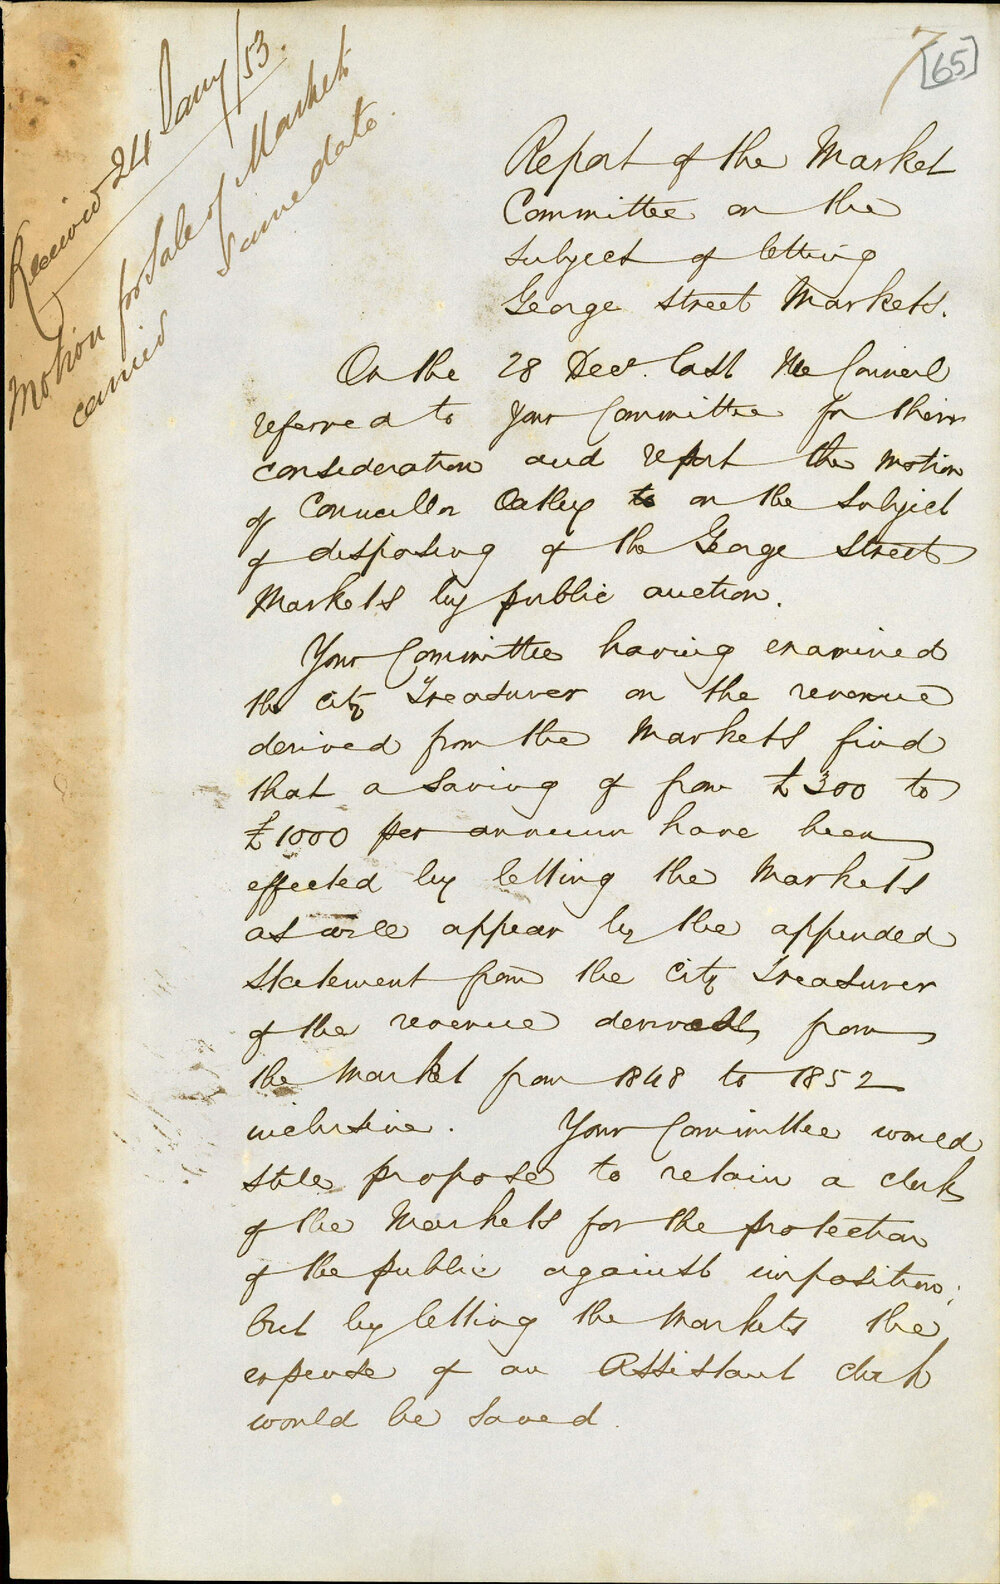 7 [65]
Received 24 Jany/53.
Motion for Sale of Markets
carried same date.
Report of the Market
Committee on the
subject of letting
George Street Markets.
On the 28 Decr. last the Council
referred to your Committee for their
consideration and report the motion
of Councillor Oatley to on the Subject
of disposing of the George Street
Markets by public auction.
Your Committee having examined
the City Treasurer on the revenue
derived from the Markets find
that a Saving of from £300 to
£1000 per annum have been
effected by letting the Markets
as will appear by the appended
Statement from the City Treasurer
of the revenue derived from
the Market from 1848 to 1852
inclusive. Your Committee would
still propose to retain a clerk
of the Markets for the protection
of the public against imposition;
but by letting the Markets the
expense of an Assistant clerk
would be Saved.